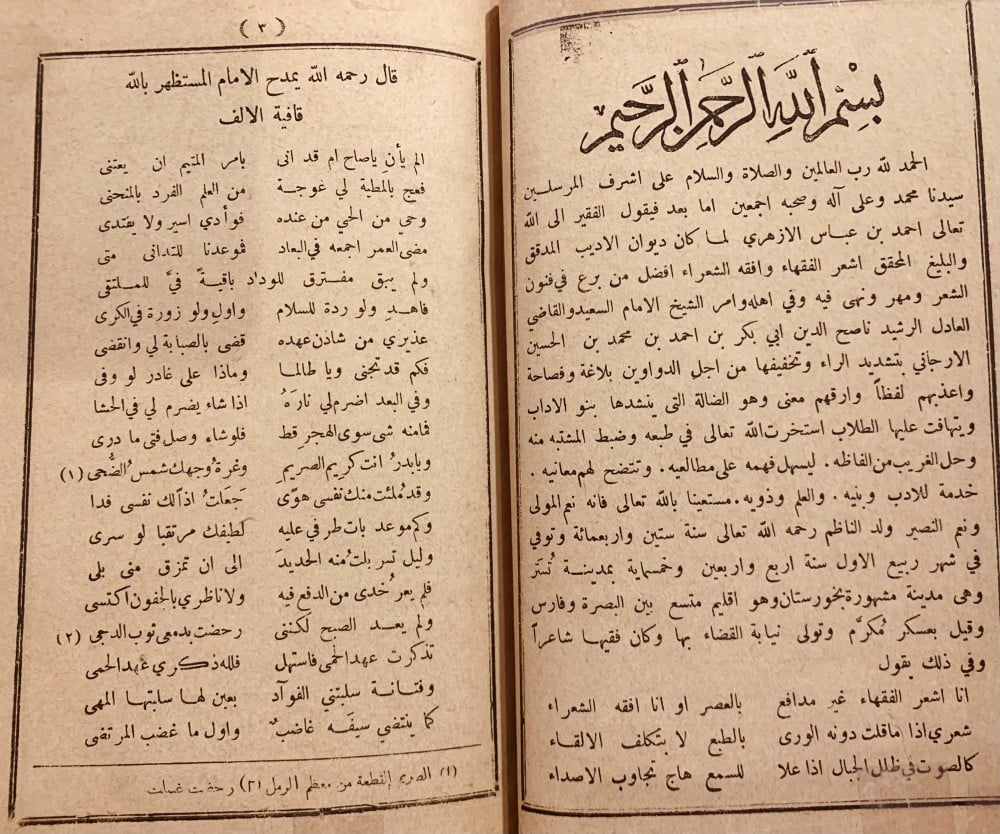 بسم الله الرحمن الرحيم
الحمد لله رب العالمين والصلاة والسلام على اشرف المرسلين
سيدنا محمد وعلى آله وصحبه اجمعين اما بعد فيقول الفقير الى الله
تعالى احمد بن عباس الازهري لما كان ديوان الاديب المدقق
والبليغ المحقق اشعر الفقهاء وافقه الشعراء افضل من برع في فنون
الشعر ومهر ونهى فيه وفي اهله وامر الشيخ الامام السعيد والقاضي
العادل الرشيد ناصح الدين ابي بكر بن احمد بن محمد بن الحسين
الارجاني بتشديد الراء وتخفيفها من اجل الدواوين بلاغة وفصاحة
واعذبهم لفظاً وارقهم معنى وهو الضالة التى ينشدها بنو الاداب
ويتهافت عليها الطلاب استخرت الله تعالى في طبعه وضبط المشتبه منه
وحل الغريب من الفاظه . ليسهل فهمه على مطالعيه . وتتضح لهم معانيه .
خدمة للادب وبنيه . والعلم وذويه . مستعينا بالله تعالى فانه نعم المولى
ونعم النصير ولد الناظم رحمه الله تعالى سنة ستين واربعمائة وتوفي
في شهر ربيع الاول سنة اربع واربعين وخمسماية بمدينة تُستَر
وهى مدينة مشهورة بخورستان وهو اقليم متسع بين البصرة وفارس
وقيل بعسكر مُكرَّم وتولى نيابة القضاء بها وكان فقيها شاعراً
وفي ذلك يقول
انا اشعر الفقهاء غير مدافع بالعصر او انا افقه الشعراء
شعري اذا ماقلت دونه الورى بالطبع لا بتكلف الالقاء
كالصوت في ظلل الجبال اذا علا للسمع هاج تجاوب الاصداء
(٣)
قال رحمه الله يمدح الامام المستظهر بالله
قافية الالف
الم يأنِ ياصاح ام قد انى بامر المتيم ان يعتنى
فعج بالمطية لي عوجة من العلم الفرد بالمنحنى
وحى من الحي من عنده فوأدي اسير ولا يفتدى
مضى العمر اجمعه في البعاد فموعدنا للتدانى متى
ولم يبق مفترق للوداد باقيةً فيَّ للملتقى
فاهدِ ولو ردة للسلام واولِ ولو زورة في الكرى
عذيري من شاذن عهده قضى بالصبابة لي وانقضى
فكم قد تجنى ويا طالما وماذا على غادر لو وفى
وفي البعد اضرم لي نارَهُ اذا شاء يضرم لي في الحشا
فمامنه شى سوى الهجر قط فلو شاء وصل فتى ما درى
ويابدرُ انت كريم الصريمِ وغرةُ وجهك شمسُ الضُّحى (١)
وقد مُلئت منك نفسى هوًى جَعلتُ اذاً لك نفسى فدا
وكم موعد بات طرفي عليه لطيفك مرتقبا لو سرى
وليل تسربلتُ منه الحديدَ الى ان تمزق منى بلى
فلم يعرُ خُدى من الدفع فيه ولا ناظري بالجفون اكتسى
ولم يعد الصبح لكننى رحضت بدمعى ثوب الدجى (٢)
تذكرت عهد الحمى فاستهل فلله ذكري عهد الحمى
وفتانة سلبتني الفوآد بعين لها سلبتها المهى
كما ينتضي سيفَه غاضبٌ واول ما غضب المرتضى
(١) الصريم القطعة من معظم الرمل (٢) رحضت غسلت